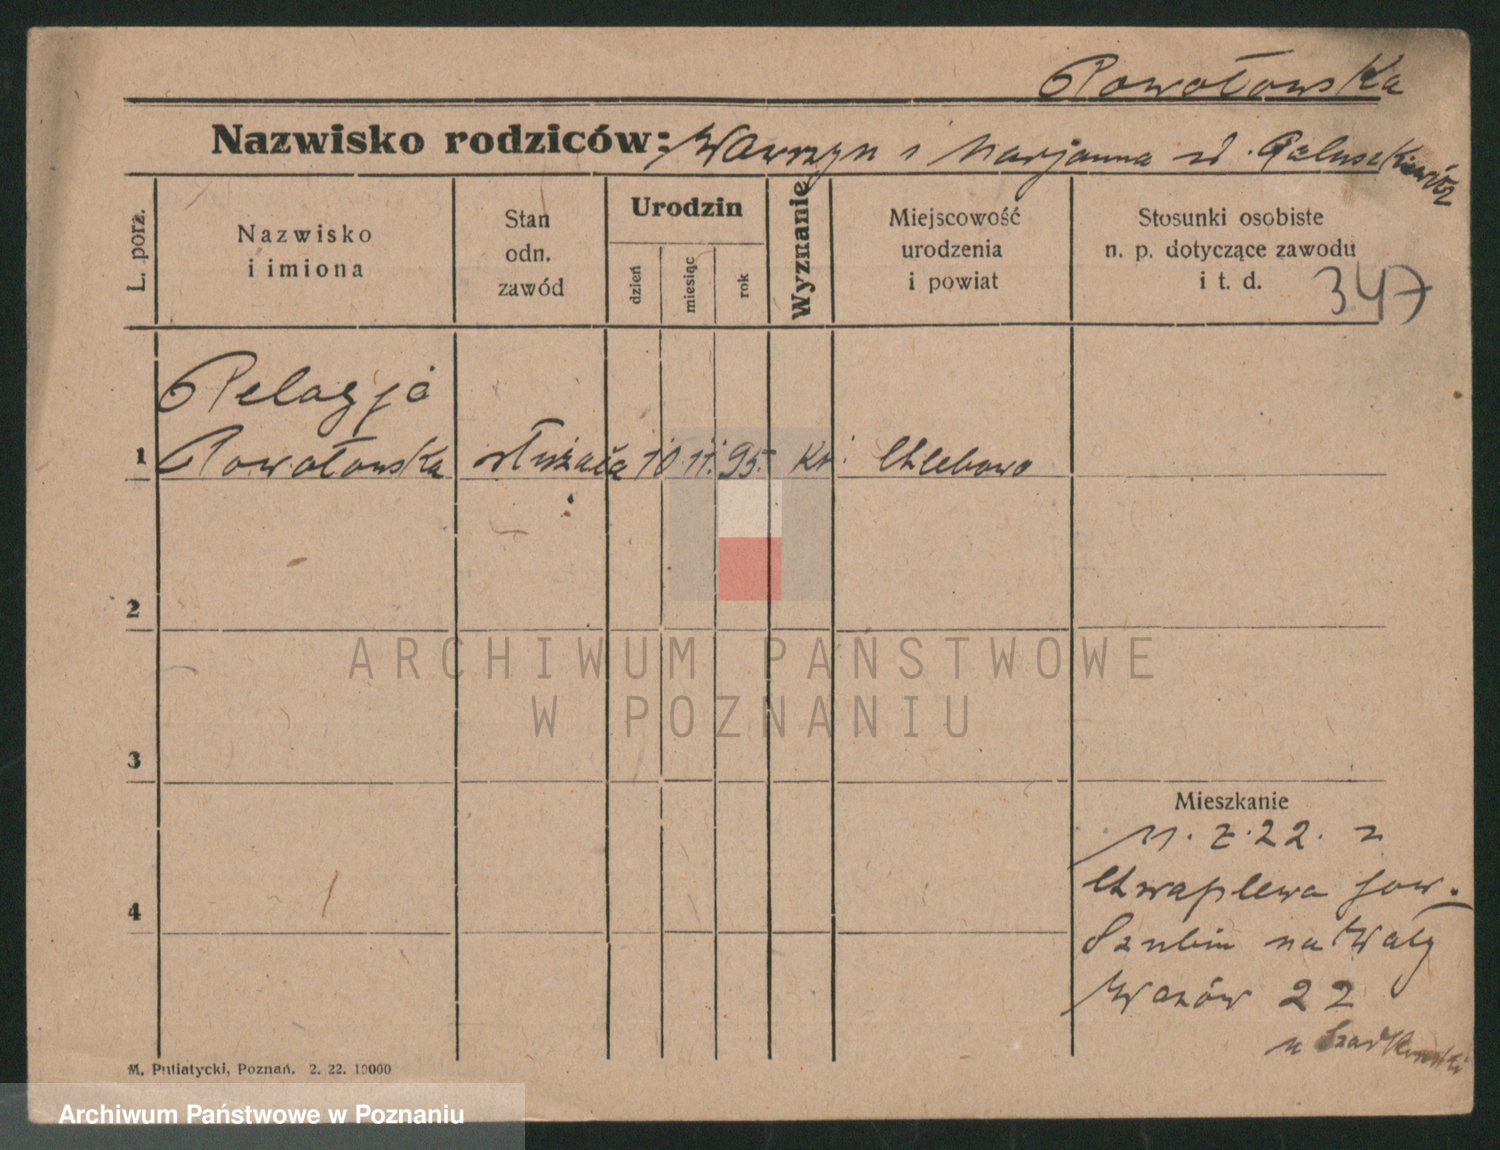 Powołowska
Nazwisko rodziców: Wawrzyn i Marjanna z d.
L. porz.
Nazwisko
i imiona
Stan
odn.
zawód
Urodzin
dzień
miesiąc
rok
Wyznanie
Miejscowość
urodzenia
i powiat
Stosunki osobiste
n. p. dotyczące zawodu
i t. d.
347
Pelagja
1 Powołowska służąca 10. 11. 95. kt. Chlebowo
2
3
4
Mieszkanie
22. z
Chwaplewa pow.
Szubin na Wały
Wazów 22
u
M. Putiatycki, Poznań. 2. 22. 10000
ARCHIWUM PAŃSTWOWE
W POZNANIU
Archiwum Państwowe w Poznaniu